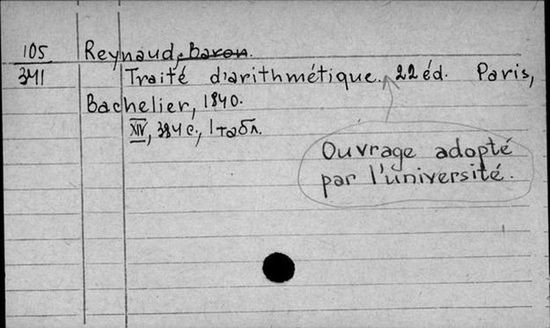 105 Reynaud, Baron.
341 Traité d'arithmétique. 22 éd. Paris,
Bachelier, 1840.
XIV, 384 с., 1 табл.
Ouvrage adopté
par l'université.